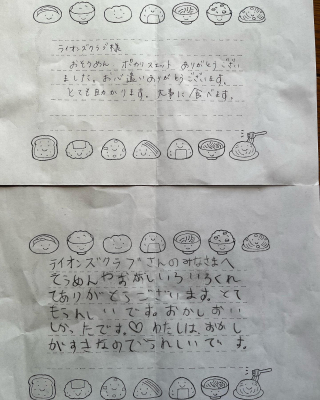 ライオンズクラブ様
おそうめん ポカリスエット ありがとうござい
ました。お心遣いありがとうございます。
とても助かります。大事に食べます。
ライオンズクラブさんのみなさまへ
そうめんやおかしいろいろくれ
てありがとうございます。とて
もうれしいです。おかしおい
しかったです。♡わたしは、おかし
がすきなのでうれしいです。